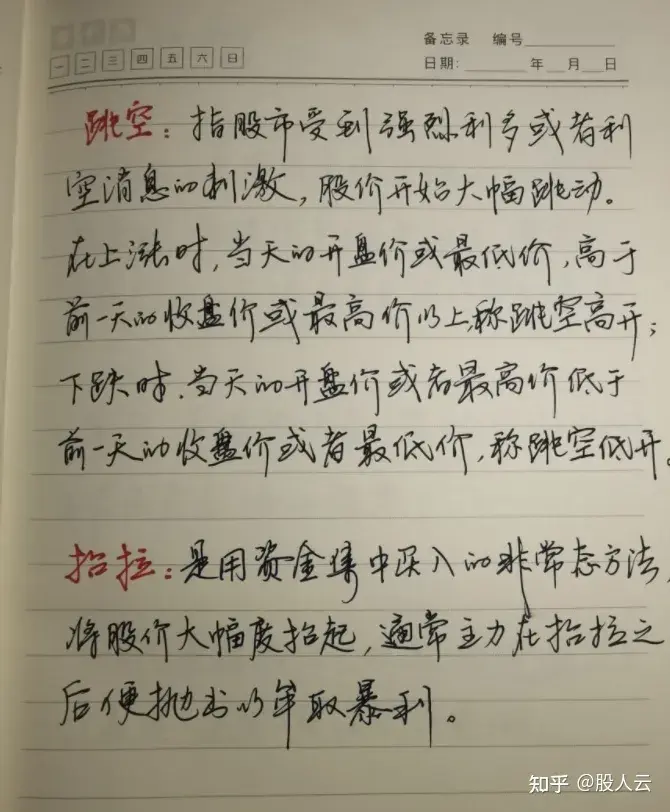 备忘录 编号
一 二 三 四 五 六 日
日期: 年 月 日
跳空：指股市受到强烈利多或者利
空消息的刺激，股价开始大幅跳动。
在上涨时，当天的开盘价或最低价，高于
前一天的收盘价或最高价以上，称跳空高开；
下跌时，当天的开盘价或者最高价低于
前一天的收盘价或者最低价，称跳空低开。
抬拉：是用资金集中买入的非常态方法，
将股价大幅度抬起，通常主力在抬拉之
后便抛出以牟取暴利。
知乎 @股人云